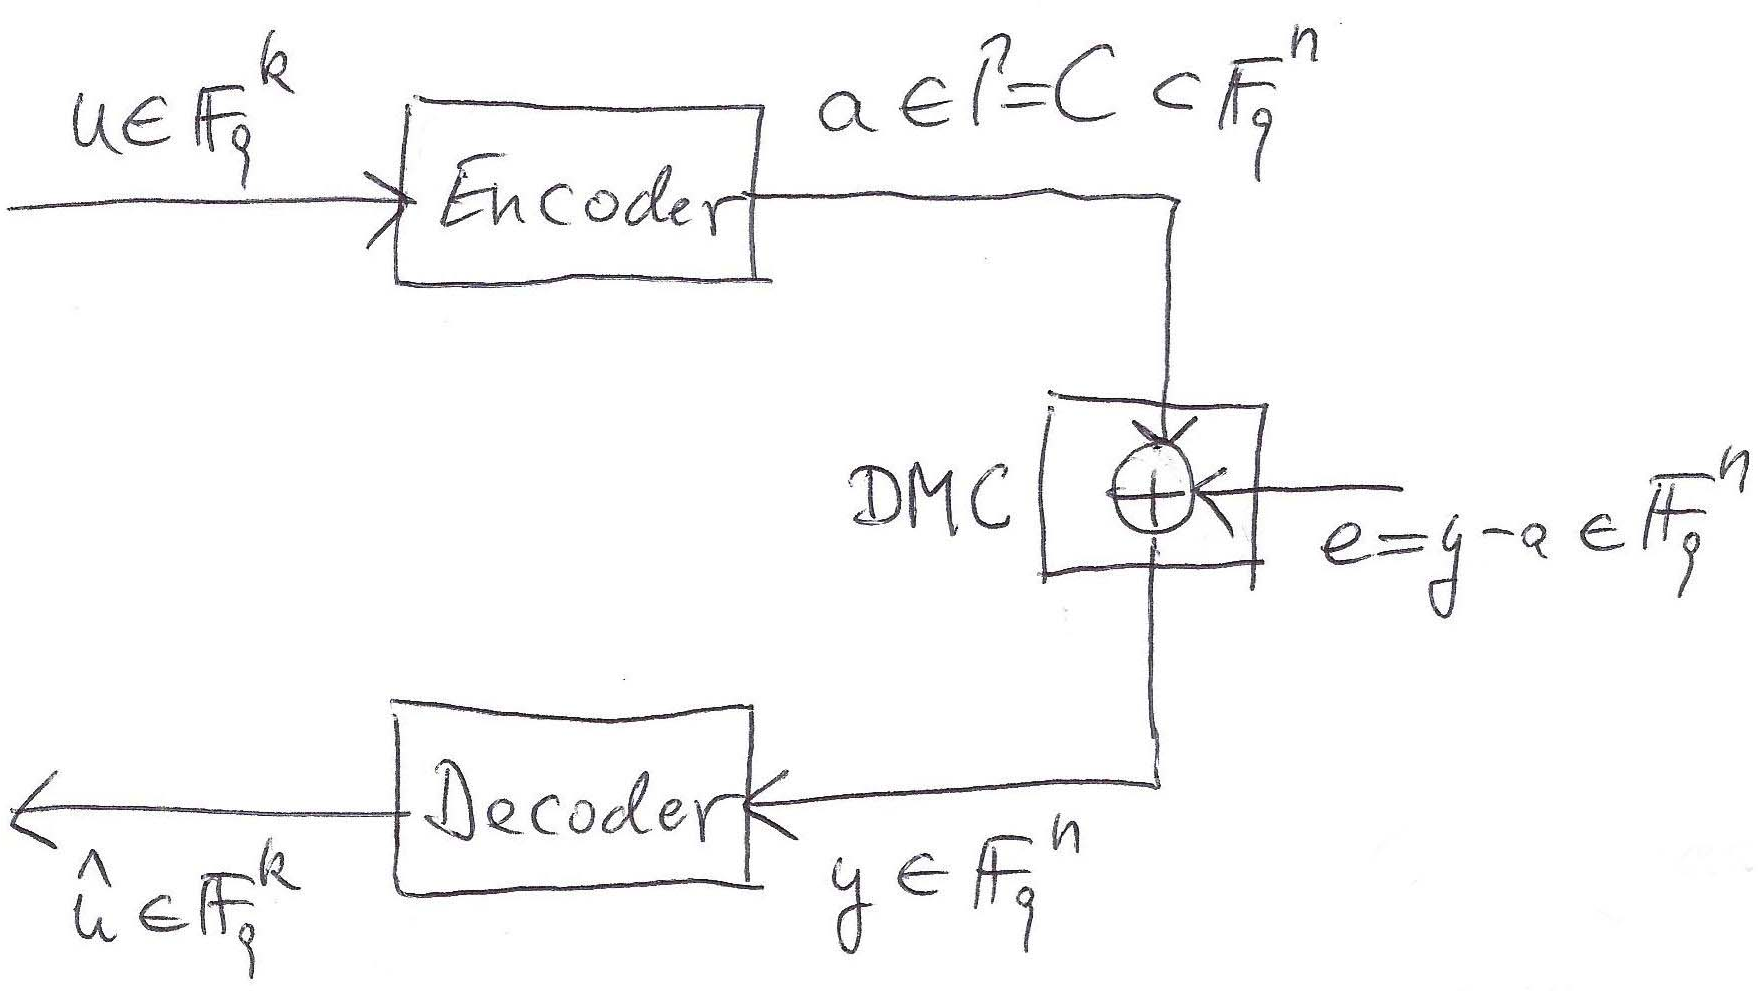 u ∈ 𝔽_q^k
Encoder
a ∈ Γ = C ⊂ 𝔽_q^n
DMC
e = y - a ∈ 𝔽_q^n
Decoder
y ∈ 𝔽_q^n
û ∈ 𝔽_q^k